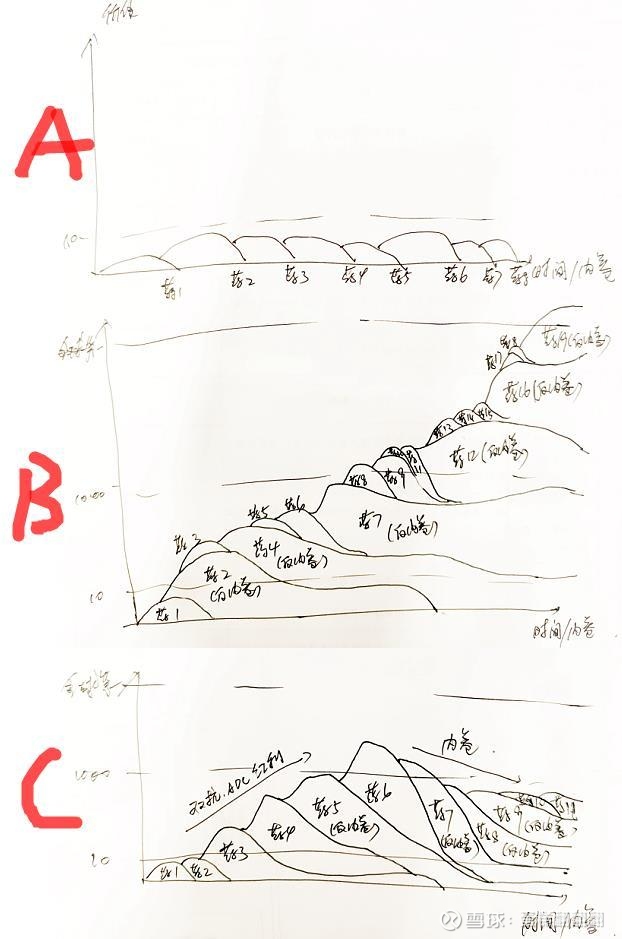 价值
A
10
药1 药2 药3 药4 药5 药6 药7 药8 时间/内卷
B
1000
10
药1
药2
(反内卷)
药3
药4
(反内卷)
药5
药6
药7
(反内卷)
药8
药9
药11
药12(反内卷)
药13
药14
药15
药16(反内卷)
药17
药18
药19(反内卷)
时间/内卷
C
1000
10
双抗、ADC红利
内卷
药1
药2
药3
药4
药5
(反内卷)
药6
药7
(反内卷)
药8
药9
(反内卷)
药10
药11
时间/内卷
雪球: